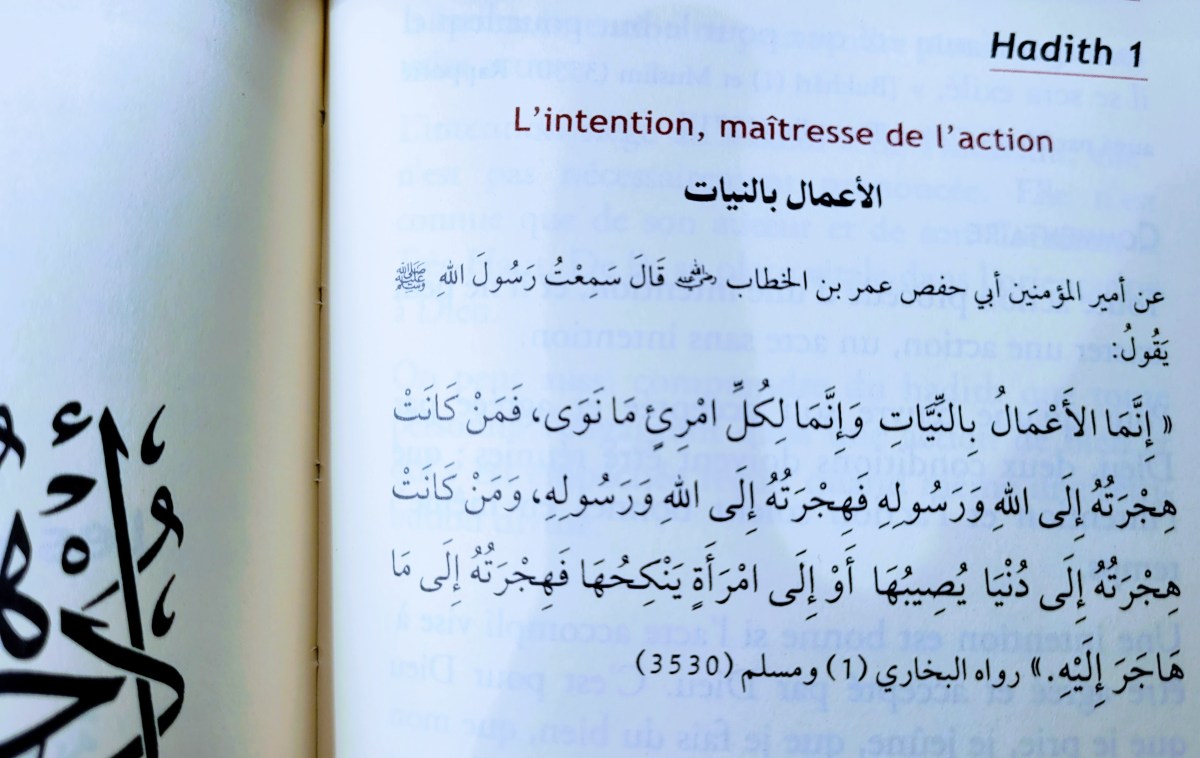 Hadith 1
L'intention, maîtresse de l'action
الأعمال بالنيات
عن أمير المؤمنين أبي حفص عمر بن الخطاب رضي الله عنه قَالَ سَمِعْتُ رَسُولَ اللهِ ﷺ
يَقُولُ:
« إِنَّمَا الأَعْمَالُ بِالنِّيَّاتِ وَإِنَّمَا لِكُلِّ امْرِئٍ مَا نَوَى، فَمَنْ كَانَتْ
هِجْرَتُهُ إِلَى اللهِ وَرَسُولِهِ فَهِجْرَتُهُ إِلَى اللهِ وَرَسُولِهِ، وَمَنْ كَانَتْ
هِجْرَتُهُ إِلَى دُنْيَا يُصِيبُهَا أَوْ إِلَى امْرَأَةٍ يَنْكِحُهَا فَهِجْرَتُهُ إِلَى مَا
هَاجَرَ إِلَيْهِ.» رواه البخاري (1) ومسلم (3530)